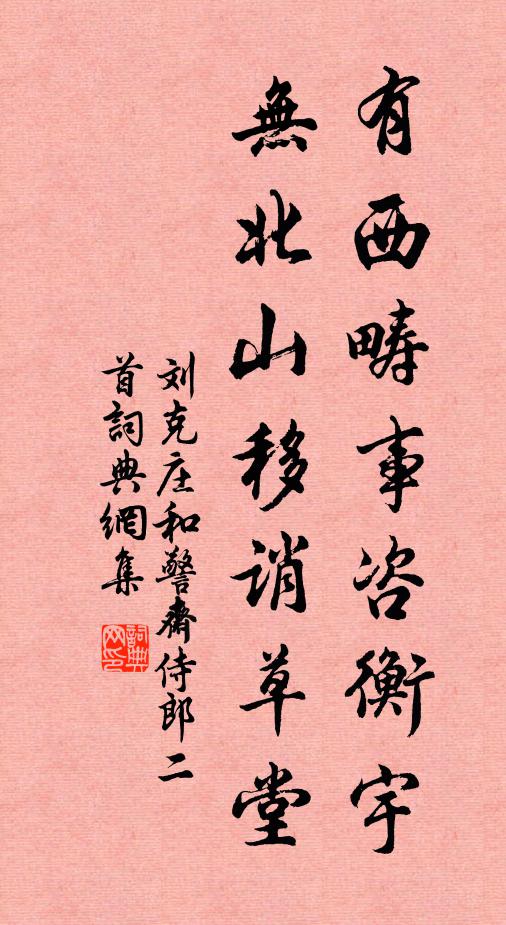 有西疇事咨衡宇
無北山移誚草堂
刘克庄和警齋侍郎二
首詞典網集
詞典
网印